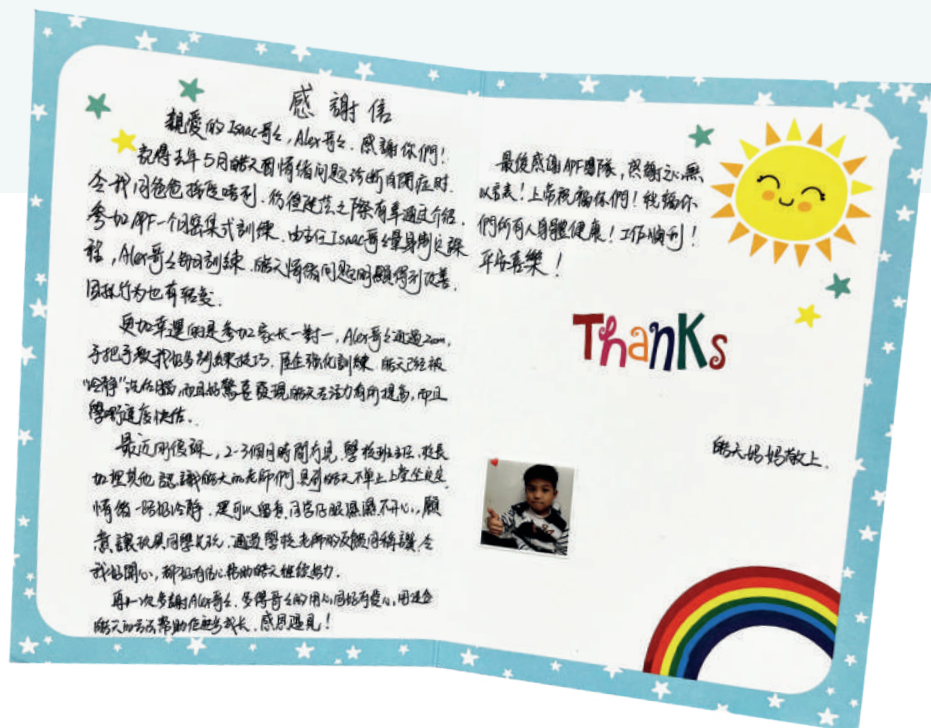 感謝信
親愛的Isaac哥哥，Alex哥哥，感謝你們！
記得去年5月皓天因情緒問題診斷自閉症時，
令我同爸爸 彷徨 之際有幸通過介紹，
參加APF一個密集式訓練，由主任Isaac哥哥量身制定課
程，Alex哥哥 訓練，皓天情緒問題明顯得到改善，
行為也有轉變。
更加幸運的是參加家長一對一，Alex哥哥通過Zoom，
手把手教我好多訓練技巧，強化訓練，皓天已經被
"冷靜"洗左腦，而且好驚喜發現皓天 力有所提高，而且
學習速度快
最近 復課，2-3個月時間 見，學校班主任，校長
加埋其他認識皓天的老師們，見到皓天不單止上堂坐定定，
情緒 冷靜，還可以留意同學 不開心，願
意讓玩具同學 玩，通過學校老師的反饋同稱讚，令
我好開心，都好有信心幫助皓天繼續努力。
再一次多謝Alex哥哥，多得哥哥的用心同 有愛心，用適合
皓天的方法幫助佢 成長，感恩遇見！
最後感謝APF團隊，感謝之心無
以言表！上帝祝福你們！祝福你
們所有人身體健康！工作順利！
平安喜樂！
Thanks
皓天媽媽敬上